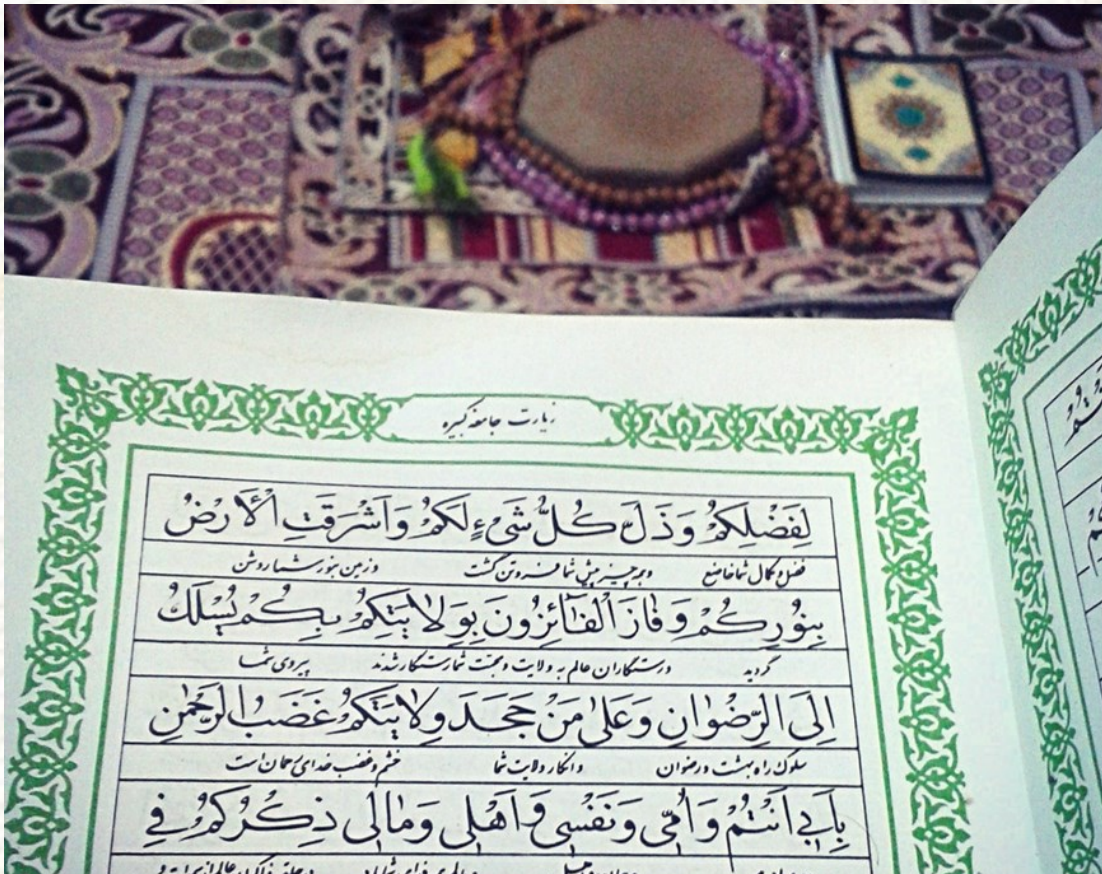 زیارت جامعه کبیره
لِفَضْلِكُمْ وَذَلَّ كُلُّ شَیْءٍ لَكُمْ وَاَشْرَقَتِ الْاَرْضُ
فضل و کمال شما خاضع و هر چیز پیش شما فروتن گشت و زمین بنور شما روشن
بِنُوْرِكُمْ وَفٰازَ الْفٰائِزُونَ بِوَلایَتِكُمْ بِكُمْ یُسْلَكُ
گردید و رستگاران عالم به ولایت و محبت شما رستگار شدند پیروی شما
اِلَی الرِّضْوٰانِ وَعَلیٰ مَنْ جَحَدَ وِلایَتَكُمْ غَضَبُ الرَّحْمٰنِ
سلوک راه بهشت و رضوان و انکار ولایت شما خشم و غضب خدای رحمان است
بِاَبی اَنْتُمْ وَاُمّی وَنَفْسی وَاَهْلی وَمٰالی ذِكْرُكُمْ فِی